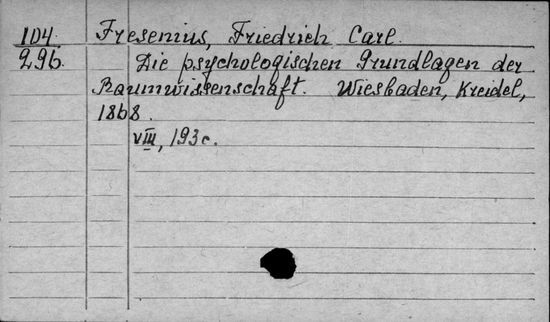 104. Fresenius, Friedrich Carl.
296. Die psychologischen Grundlagen der
Raumwissenschaft. Wiesbaden, Kreidel,
1868.
VIII, 193 c.